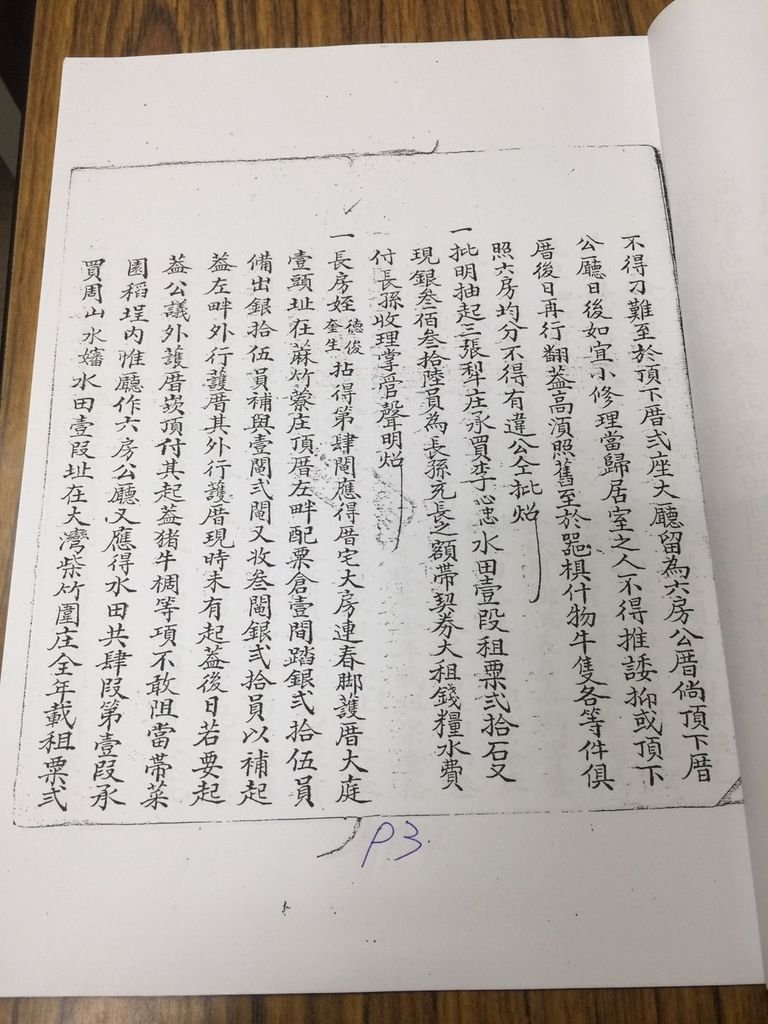 不得刁難至於頂下厝弍座大廳留為六房公厝倘頂下厝
公廳日後如宜小修理當歸居室之人不得推諉抑或頂下
厝後日再行翻蓋高湏照舊至於噐椇什物牛隻各等件俱
照六房均分不得有違公仝批炤
一批明抽起三張犁庄承買李心忠水田壹段租粟弍拾石又
現銀叁佰叁拾陸員為長孫充長之額帶契券大租錢糧水費
付長孫收理掌管聲明炤
一長房姪德俊奎生拈得第肆鬮應得厝宅大房連春脚護厝大庭
壹頭址在蔴竹藔庄頂厝左畔配粟倉壹間踏銀弍拾伍員
備出銀拾伍員補與壹鬮弍鬮又收叁鬮銀弍拾員以補起
蓋左畔外行護厝其外行護厝現時未有起蓋後日若要起
蓋公議外護厝崁頂付其起蓋猪牛椆等項不敢阻當帶菜
園稻埕內惟廳作六房公廳又應得水田共肆段第壹段承
買周山水嬸水田壹段址在大灣柴竹圍庄全年載租粟弍
P3